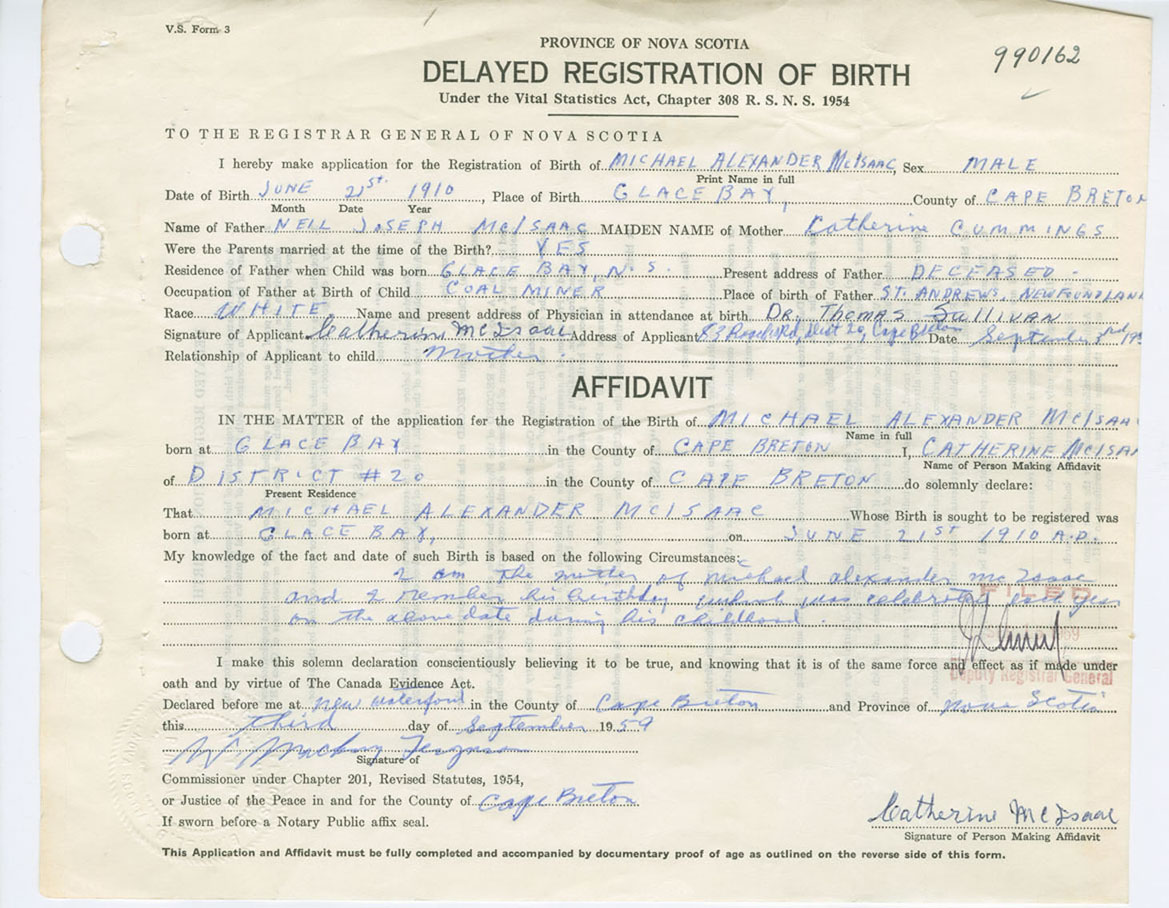 V.S. Form 3
990162
PROVINCE OF NOVA SCOTIA
DELAYED REGISTRATION OF BIRTH
Under the Vital Statistics Act, Chapter 308 R. S. N. S. 1954
TO THE REGISTRAR GENERAL OF NOVA SCOTIA
I hereby make application for the Registration of Birth of MICHAEL ALEXANDER McISAAC, Sex MALE
Print Name in full
Date of Birth JUNE 21st. 1910, Place of Birth GLACE BAY, County of CAPE BRETON
Month Date Year
Name of Father NEIL JOSEPH McISAAC MAIDEN NAME of Mother Catherine CUMMINGS
Were the Parents married at the time of the Birth? YES
Residence of Father when Child was born GLACE BAY, N.S. Present address of Father DECEASED.
Occupation of Father at Birth of Child COAL MINER Place of birth of Father ST. ANDREWS, NEWFOUNDLAND
Race WHITE Name and present address of Physician in attendance at birth DR. THOMAS SULLIVAN
Signature of Applicant Catherine McIsaac Address of Applicant 83 Dist 20, Cape Breton Date September 3rd 195
Relationship of Applicant to child Mother.
AFFIDAVIT
IN THE MATTER of the application for the Registration of the Birth of MICHAEL ALEXANDER McISAA
Name in full
born at GLACE BAY in the County of CAPE BRETON I, CATHERINE McISAA
Name of Person Making Affidavit
of DISTRICT #20 in the County of CAPE BRETON do solemnly declare:
Present Residence
That MICHAEL ALEXANDER McISAAC Whose Birth is sought to be registered was
born at GLACE BAY, on JUNE 21ST 1910 A.D.
My knowledge of the fact and date of such Birth is based on the following Circumstances:
I am the mother of Michael Alexander McIsaac
and I rember his birthday which was celebrated each year
on the above date during his childhood.
FILED
Deputy Registrar General
I make this solemn declaration conscientiously believing it to be true, and knowing that it is of the same force and effect as if made under
oath and by virtue of The Canada Evidence Act.
Declared before me at New Waterford in the County of Cape Breton and Province of Nova Scotia
this third day of September 1959
Signature of
Commissioner under Chapter 201, Revised Statutes, 1954,
or Justice of the Peace in and for the County of Cape Breton
If sworn before a Notary Public affix seal.
Catherine McIsaac
Signature of Person Making Affidavit
This Application and Affidavit must be fully completed and accompanied by documentary proof of age as outlined on the reverse side of this form.